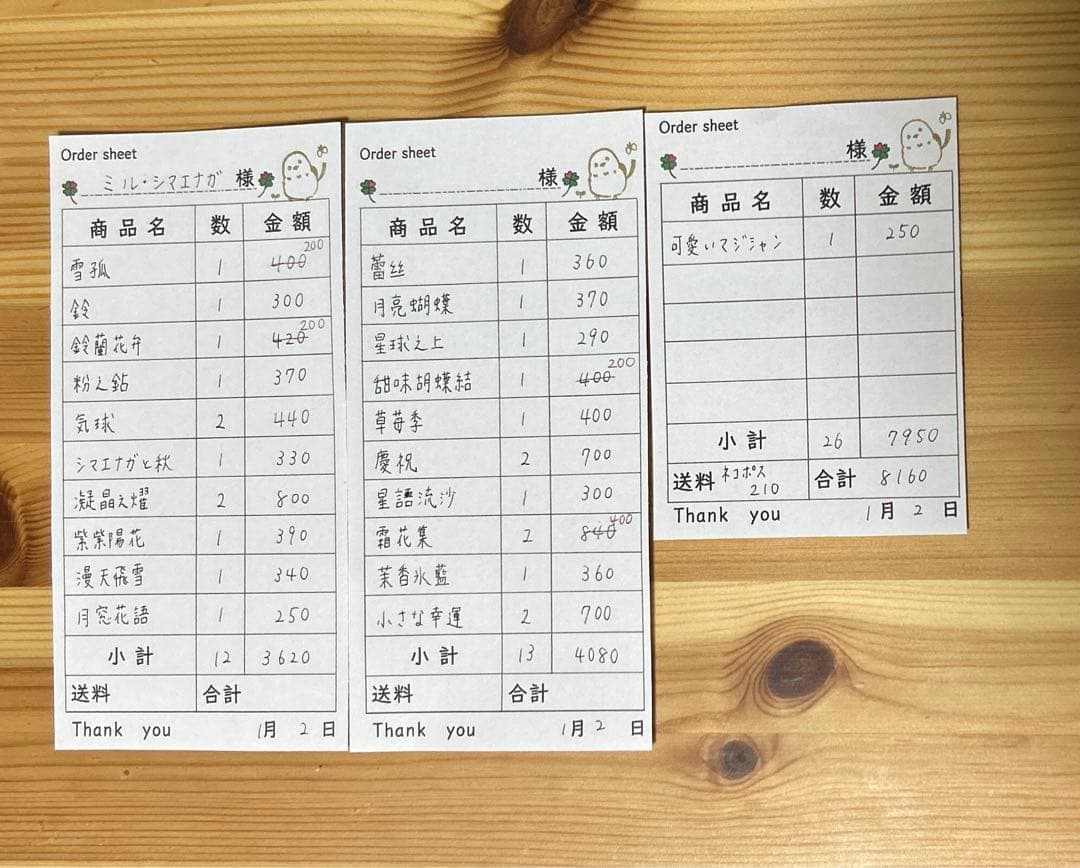 Order sheet
ミル・シマエナガ 様
商品名 数 金額
雪孤 1 400 200
鈴 1 300
鈴蘭花弁 1 420 200
粉之鉆 1 370
気球 2 440
シマエナガと秋 1 330
凝晶之燿 2 800
紫紫陽花 1 390
漫天飛雪 1 340
月窓花語 1 250
小計 12 3620
送料 合計
Thank you 1月 2日
Order sheet
様
商品名 数 金額
蕾丝 1 360
月亮蝴蝶 1 370
星球之上 1 290
甜味胡蝶結 1 400 200
草苺季 1 400
慶祝 2 700
星語流沙 1 300
霜花集 2 840 400
茉香氷藍 1 360
小さな幸運 2 700
小計 13 4080
送料 合計
Thank you 1月 2日
Order sheet
様
商品名 数 金額
可愛いマジシャン 1 250
小計 26 7950
送料 ネコポス 210 合計 8160
Thank you 1月 2日